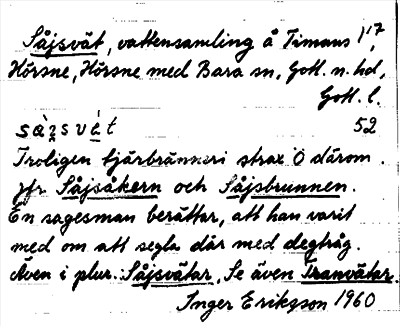 Såjsvät, vattensamling å Timans 1¹⁷,
Hörsne, Hörsne med Bara sn, Gotl. n. hd,
Gotl. l.
52
Troligen tjärbränneri strax Ö därom.
Jfr Såjsåkern och Såjsbrunnen.
En sagesman berättar, att han varit
med om att segla där med degtråg.
Även i plur. Såjsvätar, Se även Tranvätar.
Inger Erikson 1960